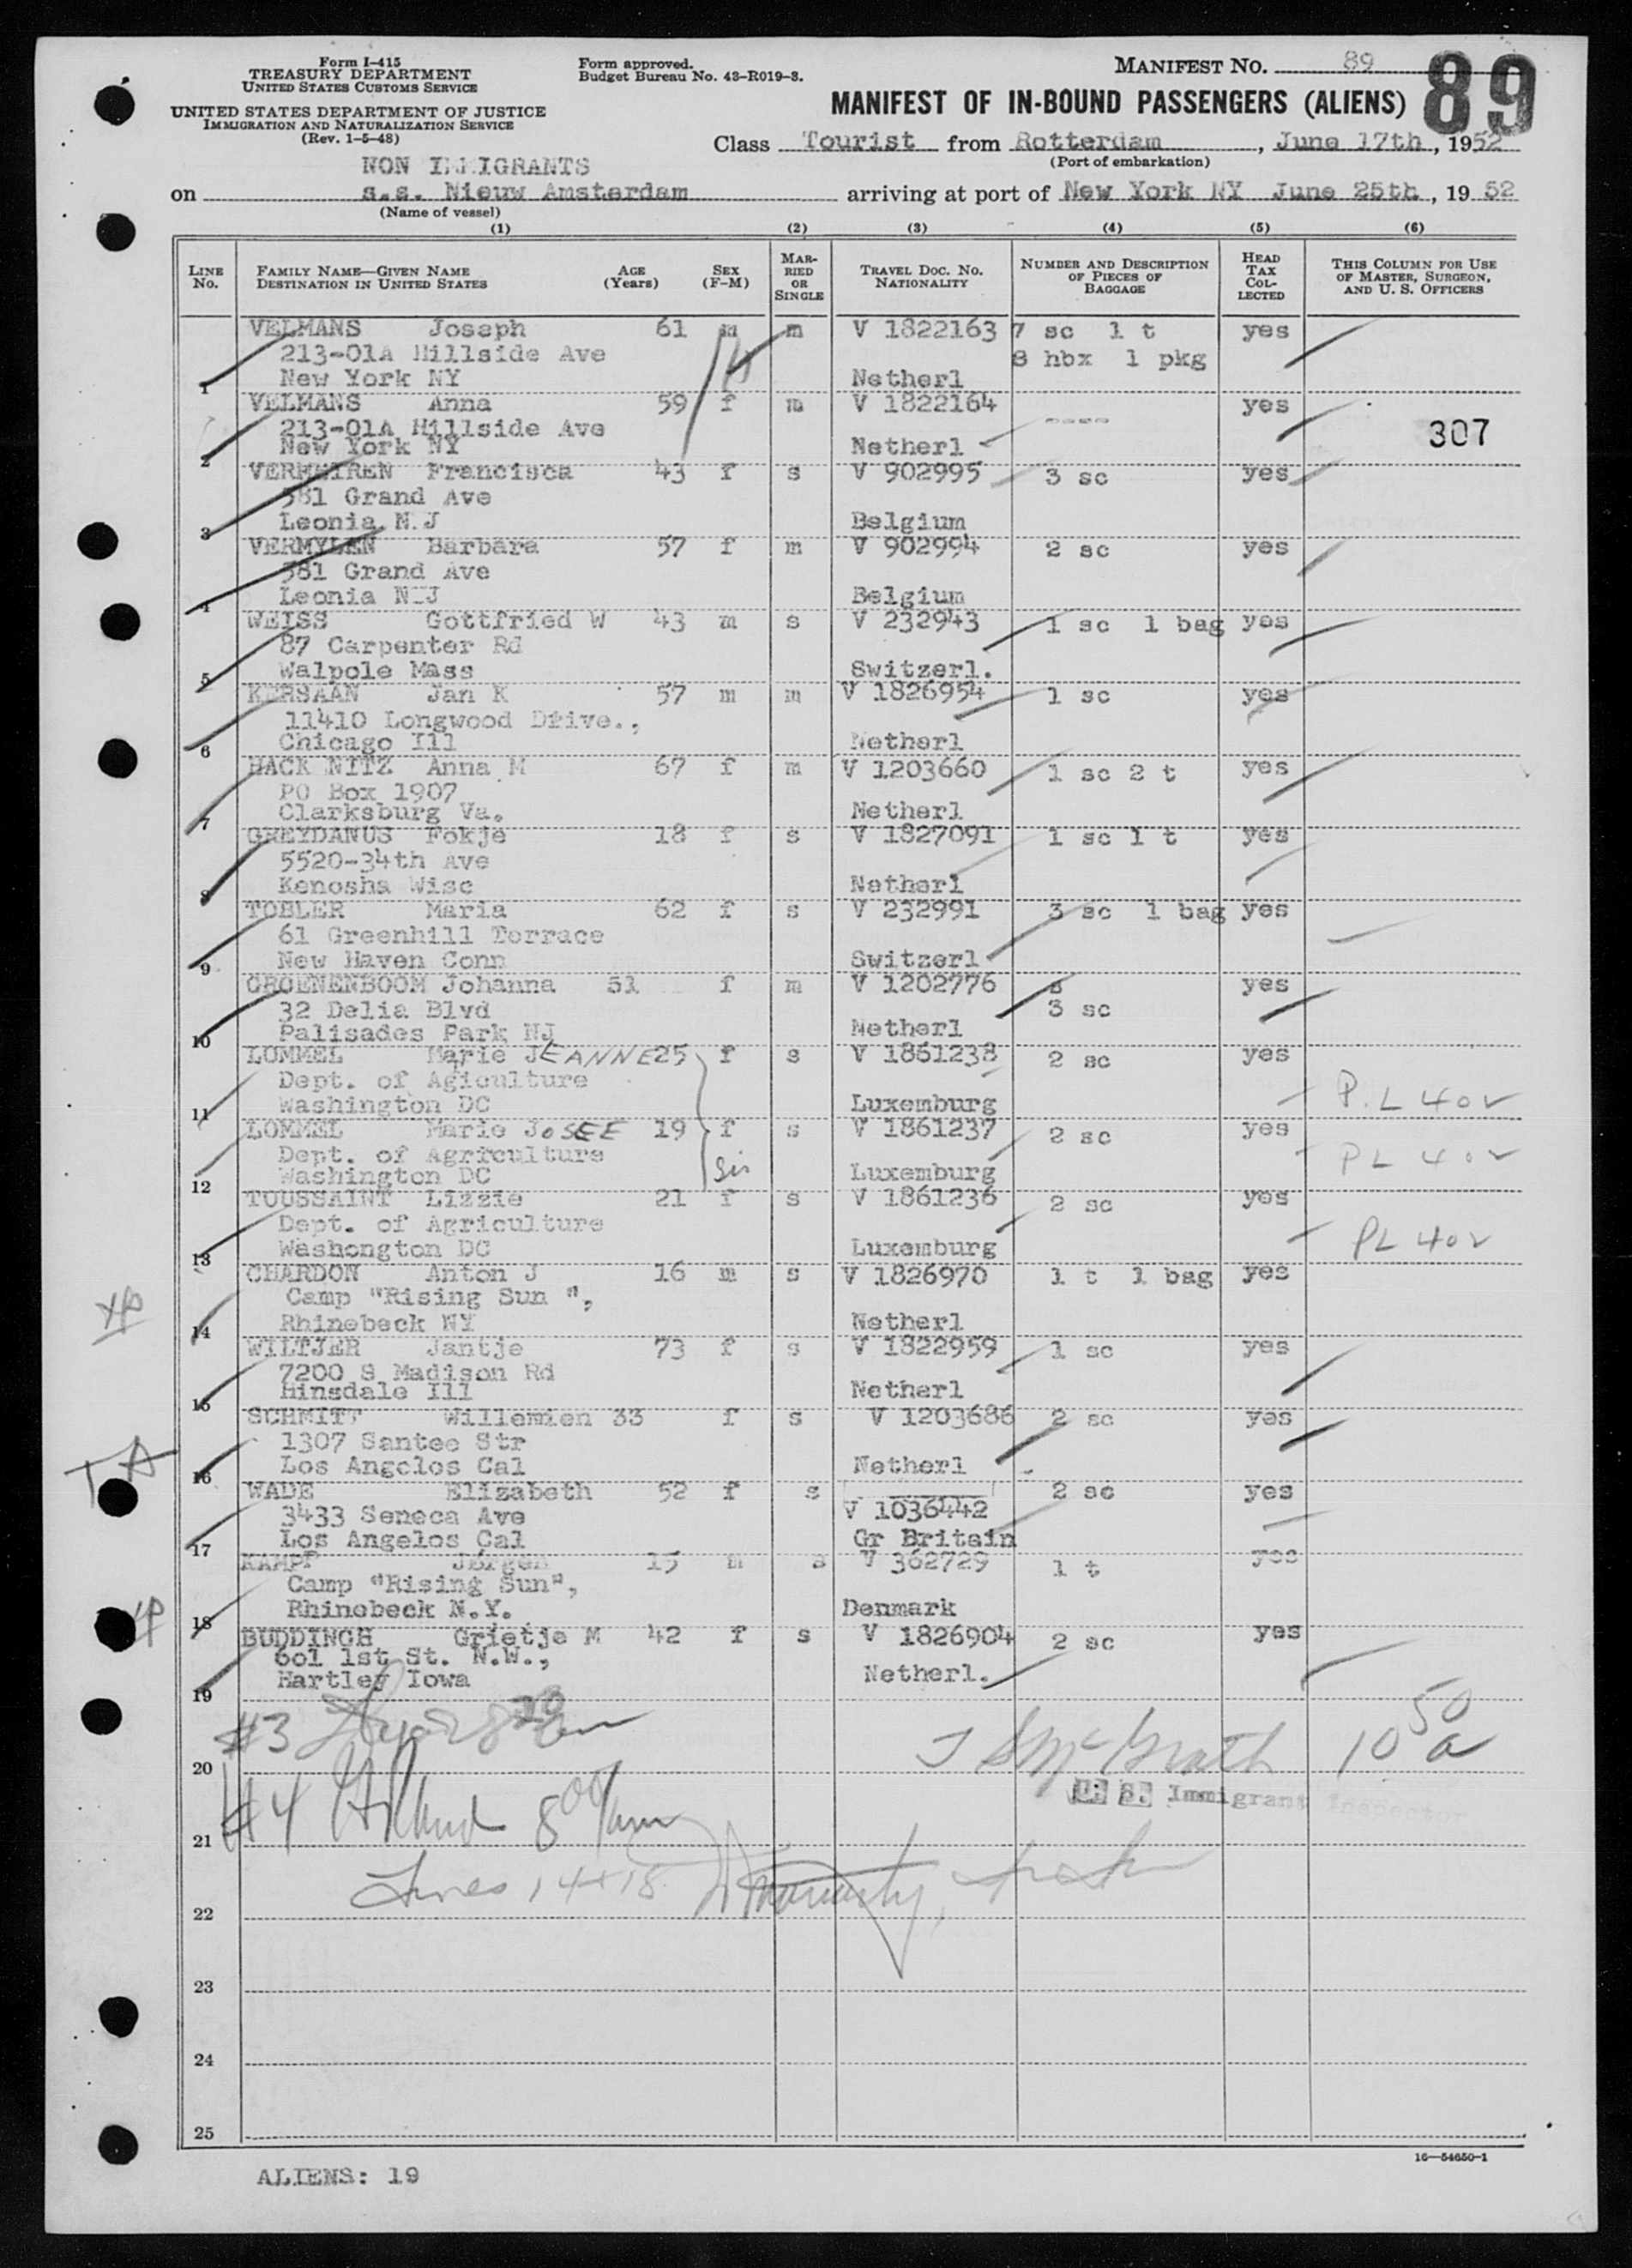 Form I-415
TREASURY DEPARTMENT
UNITED STATES CUSTOMS SERVICE
UNITED STATES DEPARTMENT OF JUSTICE
IMMIGRATION AND NATURALIZATION SERVICE
(Rev. 1-5-48)
Form approved.
Budget Bureau No. 43-R019-3.
MANIFEST NO. 89
89
MANIFEST OF IN-BOUND PASSENGERS (ALIENS)
Class Tourist from Rotterdam, June 17th, 1952
(Port of embarkation)
NON IMMIGRANTS
on s.s. Nieuw Amsterdam arriving at port of New York NY June 25th, 19 52
(Name of vessel)
(1) (2) (3) (4) (5) (6)
LINE No. FAMILY NAME—GIVEN NAME DESTINATION IN UNITED STATES AGE (Years) SEX (F-M) MARRIED OR SINGLE TRAVEL DOC. NO. NATIONALITY NUMBER AND DESCRIPTION OF PIECES OF BAGGAGE HEAD TAX COLLECTED THIS COLUMN FOR USE OF MASTER, SURGEON, AND U. S. OFFICERS
VELMANS Joseph 61 m m V 1822163 7 sc 1 t yes
213-01A Hillside Ave 8 hbx 1 pkg
1 New York NY Netherl
VELMANS Anna 59 f m V 1822164 ---- yes
213-01A Hillside Ave 307
2 New York NY Netherl
VERHEIREN Francisca 43 f s V 902995 3 sc yes
381 Grand Ave
3 Leonia N.J Belgium
VERMYLEN Barbara 57 f m V 902994 2 sc yes
381 Grand Ave
4 Leonia N.J Belgium
WEISS Gottfried W 43 m s V 232943 1 sc 1 bag yes
87 Carpenter Rd
5 Walpole Mass Switzerl.
KERSAAN Jan K 57 m m V 1826954 1 sc yes
11410 Longwood Drive.,
6 Chicago Ill Netherl
HACK NITZ Anna M 67 f m V 1203660 1 sc 2 t yes
PO Box 1907
7 Clarksburg Va. Netherl
GREYDANUS Fokje 18 f s V 1827091 1 sc 1 t yes
5520-34th Ave
8 Kenosha Wisc Netherl
TOBLER Maria 62 f s V 232991 3 sc 1 bag yes
61 Greenhill Terrace
9 New Haven Conn Switzerl
GROENENBOOM Johanna 51 f m V 1202776 yes
32 Delia Blvd 3 sc
10 Palisades Park NJ Netherl
LOMMEL Marie JEANNE 25 f s V 1861238 2 sc yes
Dept. of Agiculture
11 Washington DC Luxemburg P.L 402
LOMMEL Marie JOSEE 19 f s V 1861237 2 sc yes
Dept. of Agriculture PL 402
12 Washington DC sis Luxemburg
TOUSSAINT Lizzie 21 f s V 1861236 2 sc yes
Dept. of Agriculture
13 Washongton DC Luxemburg PL 402
CHARDON Anton J 16 m s V 1826970 1 t 1 bag yes
Camp "Rising Sun ",
14 Rhinebeck NY Netherl
WILTJER Jantje 73 f s V 1822959 1 sc yes
7200 S Madison Rd
15 Hinsdale Ill Netherl
SCHMITT Willemien 33 f s V 1203686 2 sc yes
1307 Santee Str
16 Los Angelos Cal Netherl
WADE Elizabeth 52 f s 2 sc yes
3433 Seneca Ave V 1036442
17 Los Angelos Cal Gr Britain
KAMPP Jørgen 15 m s V 362729 1 t yes
Camp "Rising Sun",
18 Rhinebeck N.Y. Denmark
BUDDINGH Grietje M 42 f s V 1826904 2 sc yes
601 1st St. N.W.,
19 Hartley Iowa Netherl.
#3
20 McGrath 10 50 a
U. S. Immigrant Inspector
#4 8 00
21
Lines 14+18
22
23
24
25
16—54650-1
ALIENS: 19